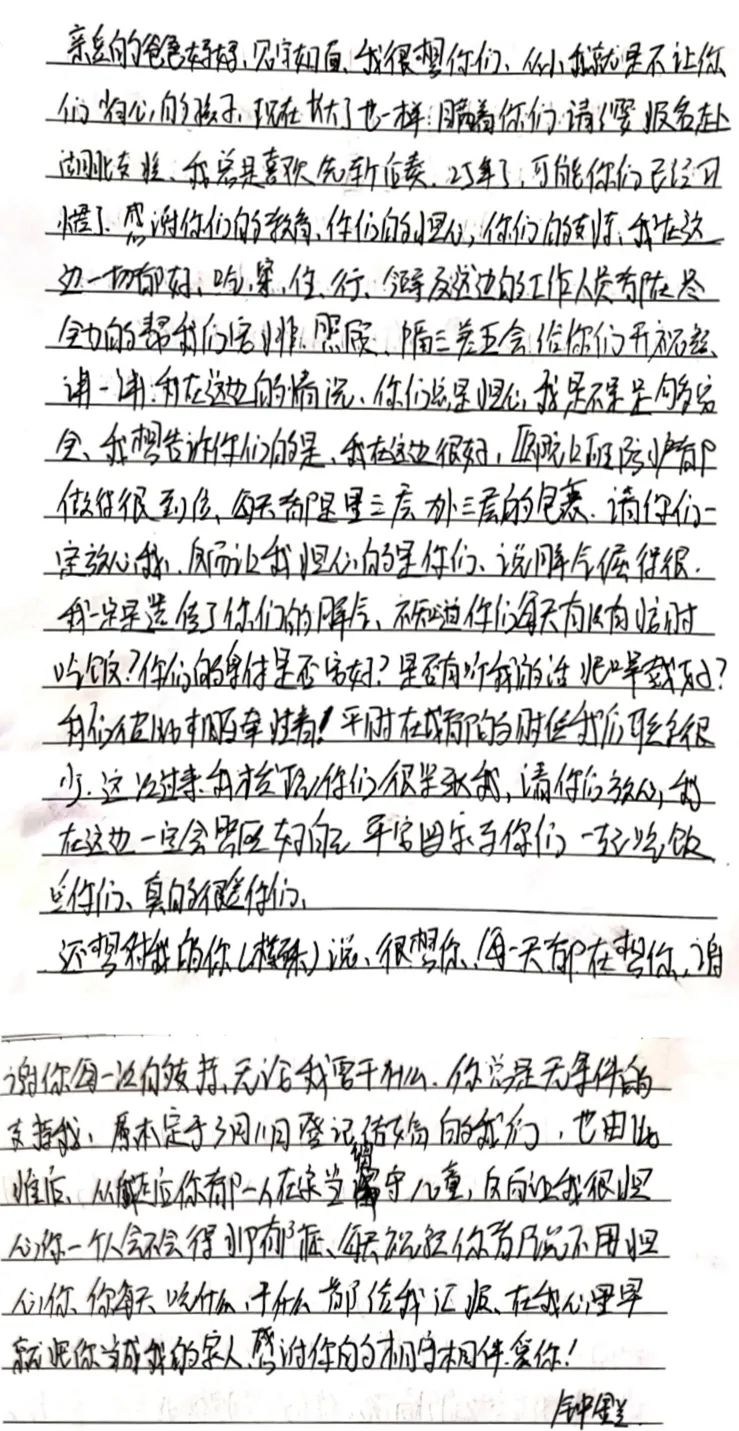 亲爱的爸爸妈妈,见字如面,我很想你们、从小我就是不让你
们省心的孩子,现在长大了也一样,瞒着你们请缨报名赴
湖北支援、我总是喜欢先斩后奏,25年了,可能你们已经习
惯了。感谢你们的教育,你们的担心,你们的支持,我在这
边一切都好,吃,穿,住,行、领导及这边的工作人员都在尽
全力的帮我们安排照顾、隔三差五会给你们开视频、
讲一讲我在这边的情况、你们总是担心我是不是足够安
全、我想告诉你们的是、我在这边很好,医院上班防护都
做得很到位、每天都是里三层外三层的包裹、请你们一
定放心我、反而让我担心的是你们、说脾气倔得很.
我一定是遗传了你们的脾气、不知道你们每天有没有按时
吃饭?你们的身体是否安好?是否有听我的话把口罩戴好?
我们彼此相互牵挂着!平时在成都的时候我们联系很
少、这次过来我才发现你们很牵挂我,请你们放心,我
在这边一定会照顾好自己 平安回家与你们一起吃饭
爱你们、真的很爱你们、
还想对我的你()说、很想你、每一天都在想你、谢
谢你每一次的支持、无论我要干什么、你总是无条件的
支持我、原本定于3月11日登记结婚的我们,也由此
推后、从疫你都一人在家当留守儿童,反而让我很担
心你一个人会不会得抑郁症、每天视频你都说不用担
心你、你每天吃什么,干什么都给我汇报、在我心里早
就把你当成我的家人、感谢你的相守相伴、爱你!
钟